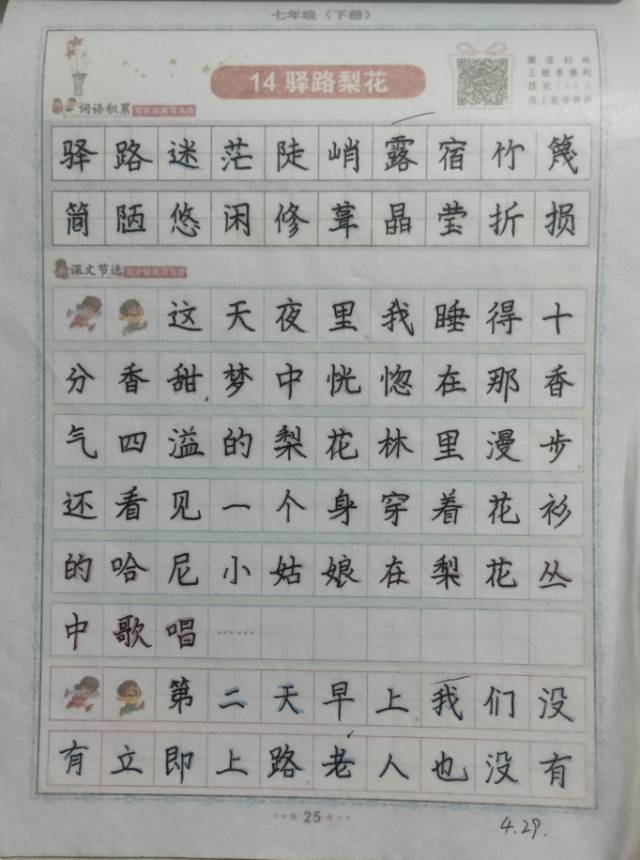 七年级（下册）
14 驿路梨花
词语积累
驿路迷茫陡峭露宿竹篾
简陋悠闲修葺晶莹折损
课文节选
这天夜里我睡得十
分香甜，梦中恍惚在那香
气四溢的梨花林里漫步
还看见一个身穿着花衫
的哈尼小姑娘在梨花丛
中歌唱……
第二天早上我们没
有立即上路老人也没有
25
4.29.